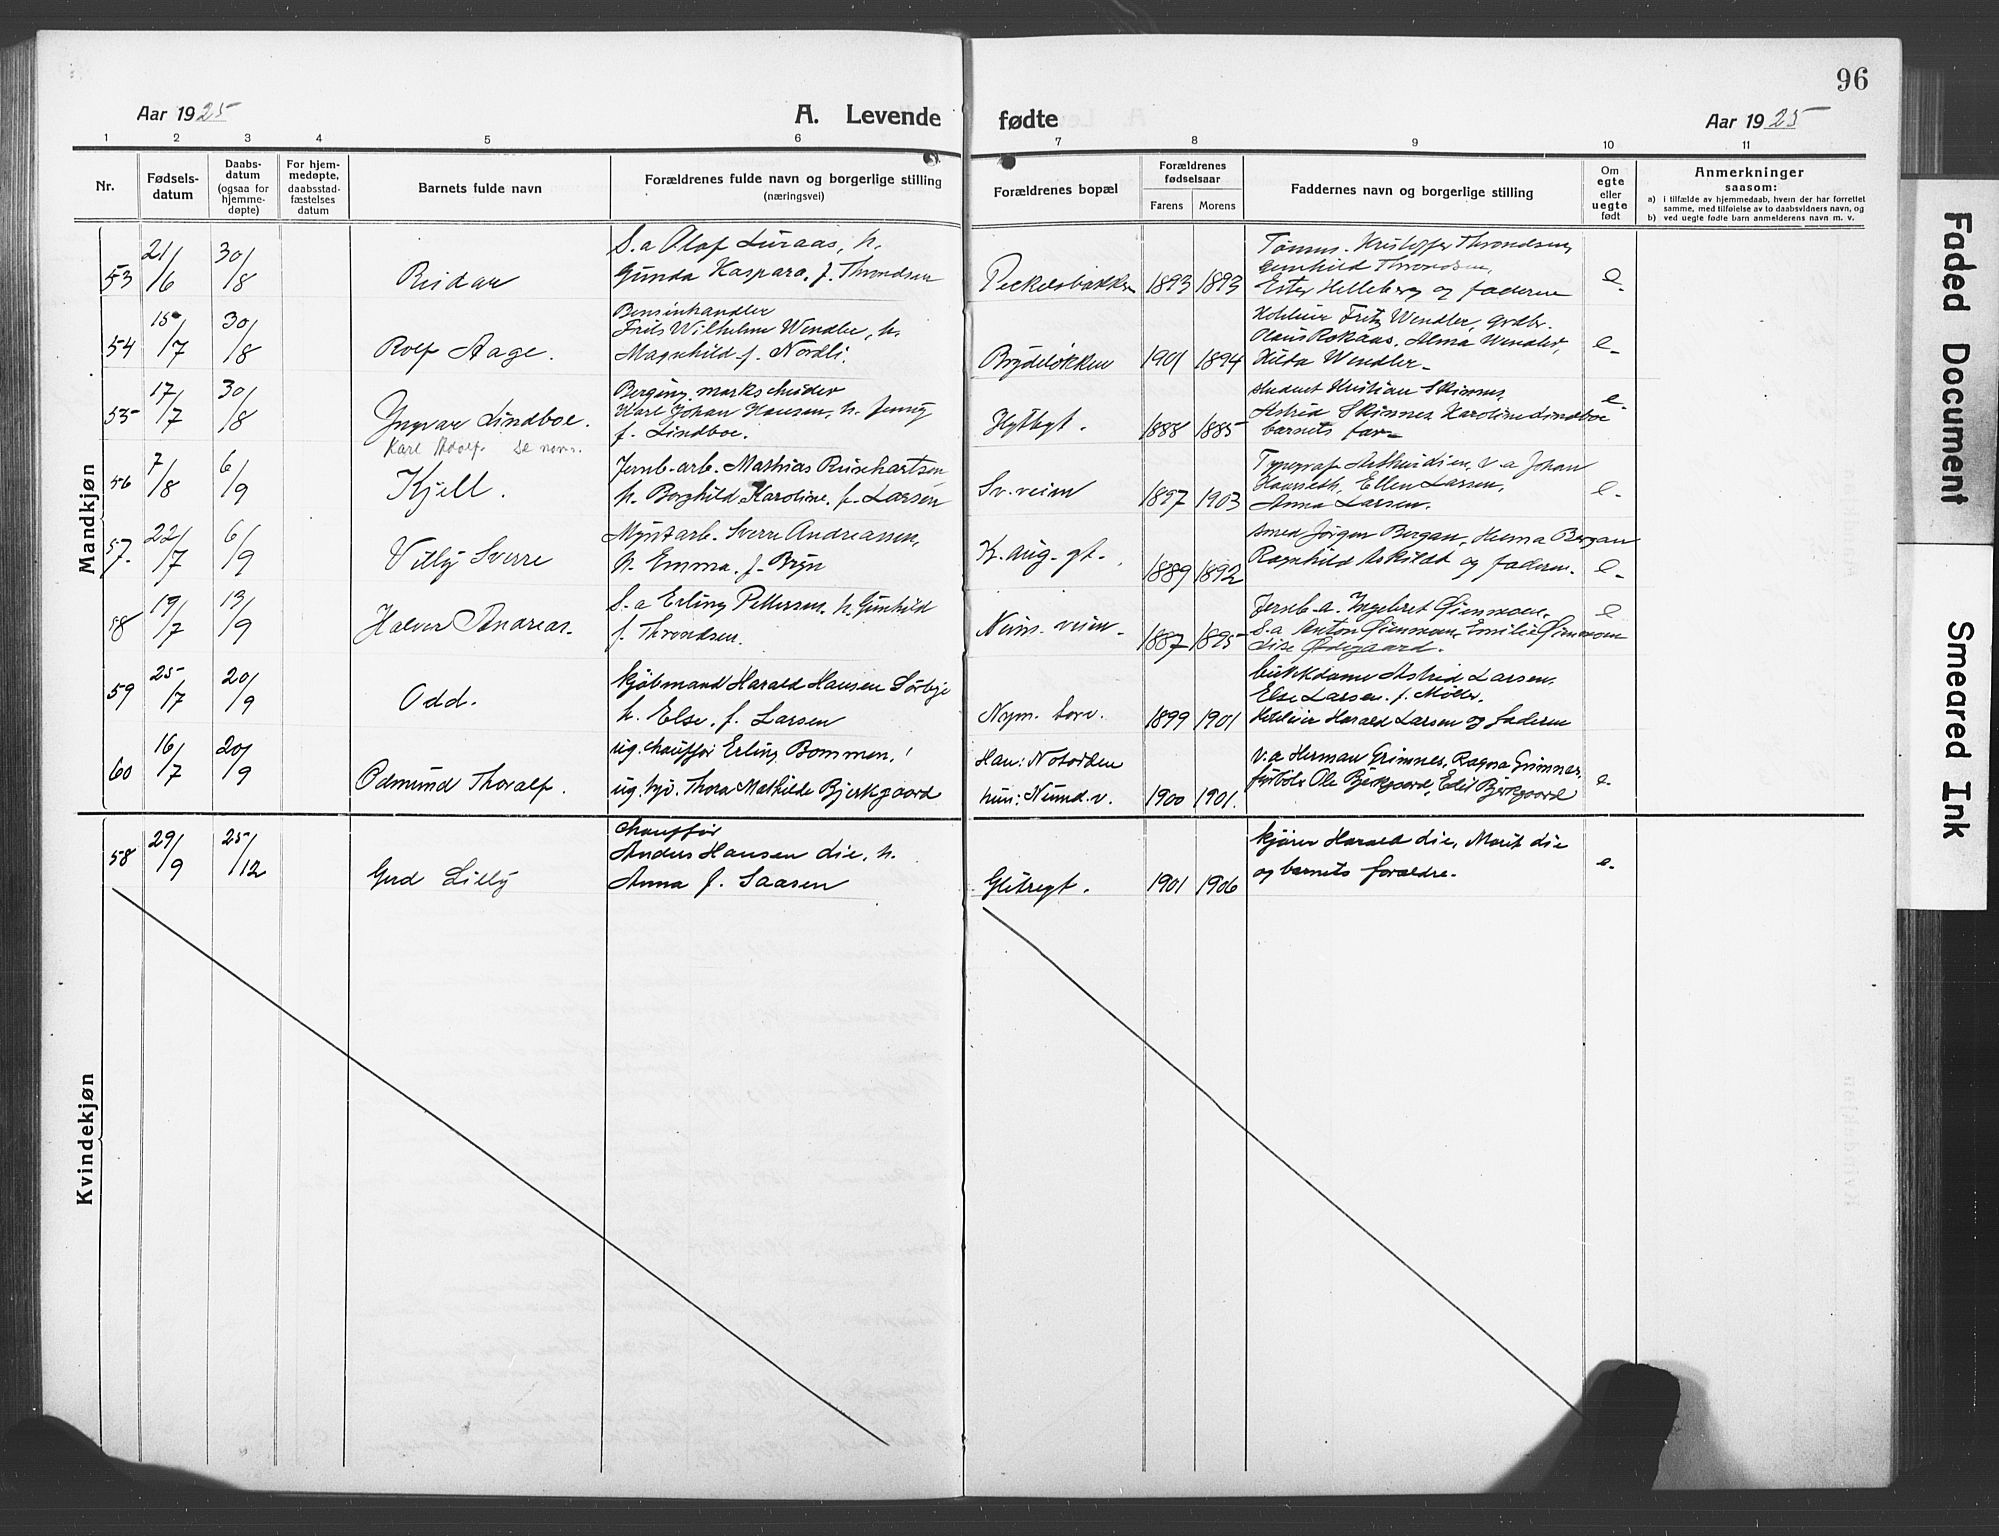 96
Aar 1925
A. Levende
fødte
Aar 1925
1 2 3 4 5 6 7 8 9 10 11
Nr.
Fødsels-
datum
Daabs-
datum
(ogsaa for
hjemme-
døpte)
For hjem-
medøpte,
daabsstad-
fæstelses
datum
Barnets fulde navn
Forældrenes fulde navn og borgerlige stilling
(næringsvei)
Forældrenes bopæl
Forældrenes
fødselsaar
Farens Morens
Faddernes navn og borgerlige stilling
Om
egte
eller
uegte
født
Anmerkninger
saasom:
a) i tilfælde av hjemmedaab, hvem der har forrettet
samme, med tilføielse av to daabsvidners navn, og
b) ved uegte fødte barn anmelderens navn m. v.
Mandkjøn
53 21/6 30/8
Reidar
S.a Olaf Luraas, h.
Gunda Kaspara, f. Throndsen
Peckelsbakken
1893 1893
Kristoffer Throndsen,
Gunhild Throndsen,
Ester Helleberg og faderen
e.
54 15/7 30/8
Rolf Aage.
Bensinhandler
Frits Wilhelm Wendler, h.
Magnhild f. Nordli.
Brydeløkken
1901 1894
Fritz Wendler, grdbr.
Olaus Rokaas, Alma Wendler,
Hilda Wendler-
e-
55 17/7 30/8
Yngvar Lindboe.
Karl Adolf. Se navn.
Karl Johan Hansen, h. Jenny
f. Lindboe.
Hyttegt.
1888 1885
student Kristian Skinnes,
Astrid Skinnes, Karoline Lindboe
barnets far-
e-
56 7/8 6/9
Kjell.
Jernb-arb. Mathias
h. Borghild Karoline, f. Larsen
Sv. veien
1897 1903
Typograf v.a Johan
Ellen Larsen,
Anna Larsen.
e-
57. 22/7 6/9
Villy Sverre
Myntarb. Sverre Andreassen,
h. Emma, f. Bryn
K. aug. gt.
1889 1892
smed Jørgen Bergan, Herma Bergan
Ragnhild Askilat og faderen.
e-
58 19/7 13/9
Halvor Andreas.
S.a Erling Pettersen, h. Gunhild
f. Throndsen.
Neum. veien.
1887 1895
Jernb-a. Ingebret Øienmoen,
S.a Anton Øienmoen, Emilie Øienmoen
Lise Ødegaard.
e
59 25/7 20/9
Odd.
kjøbmand Harald Hansen Sørbye
h. Else, f. Larsen
Nym. torv.
1899 1901
butikkdame Astrid Larsen,
Else Larsen f. Møller.
Harald Larsen og faderen
60 16/7 20/9
Odmund Thoralf.
ug. chauffør Erling Bommen,
ug. tyv. Thora Mathilde Bjerkgaard
Han: Notodden
hun: Neumd. v.
1900 1901.
v.a Herman Grimnes, Ragna Grimnes,
fyrbøter Ole Bjerkgaard, Edit Bjerkgaard
e-
Kvindekjøn
58 29/9 25/12
Gerd Lilly
Chauffør
Anders Hansen Lie, h.
Anna f. Saasen
Glitregt.
1901 1906
kjører Harald Lie, Marit Lie
og barnets forældre.
e-
Faded Document
Smeared Ink